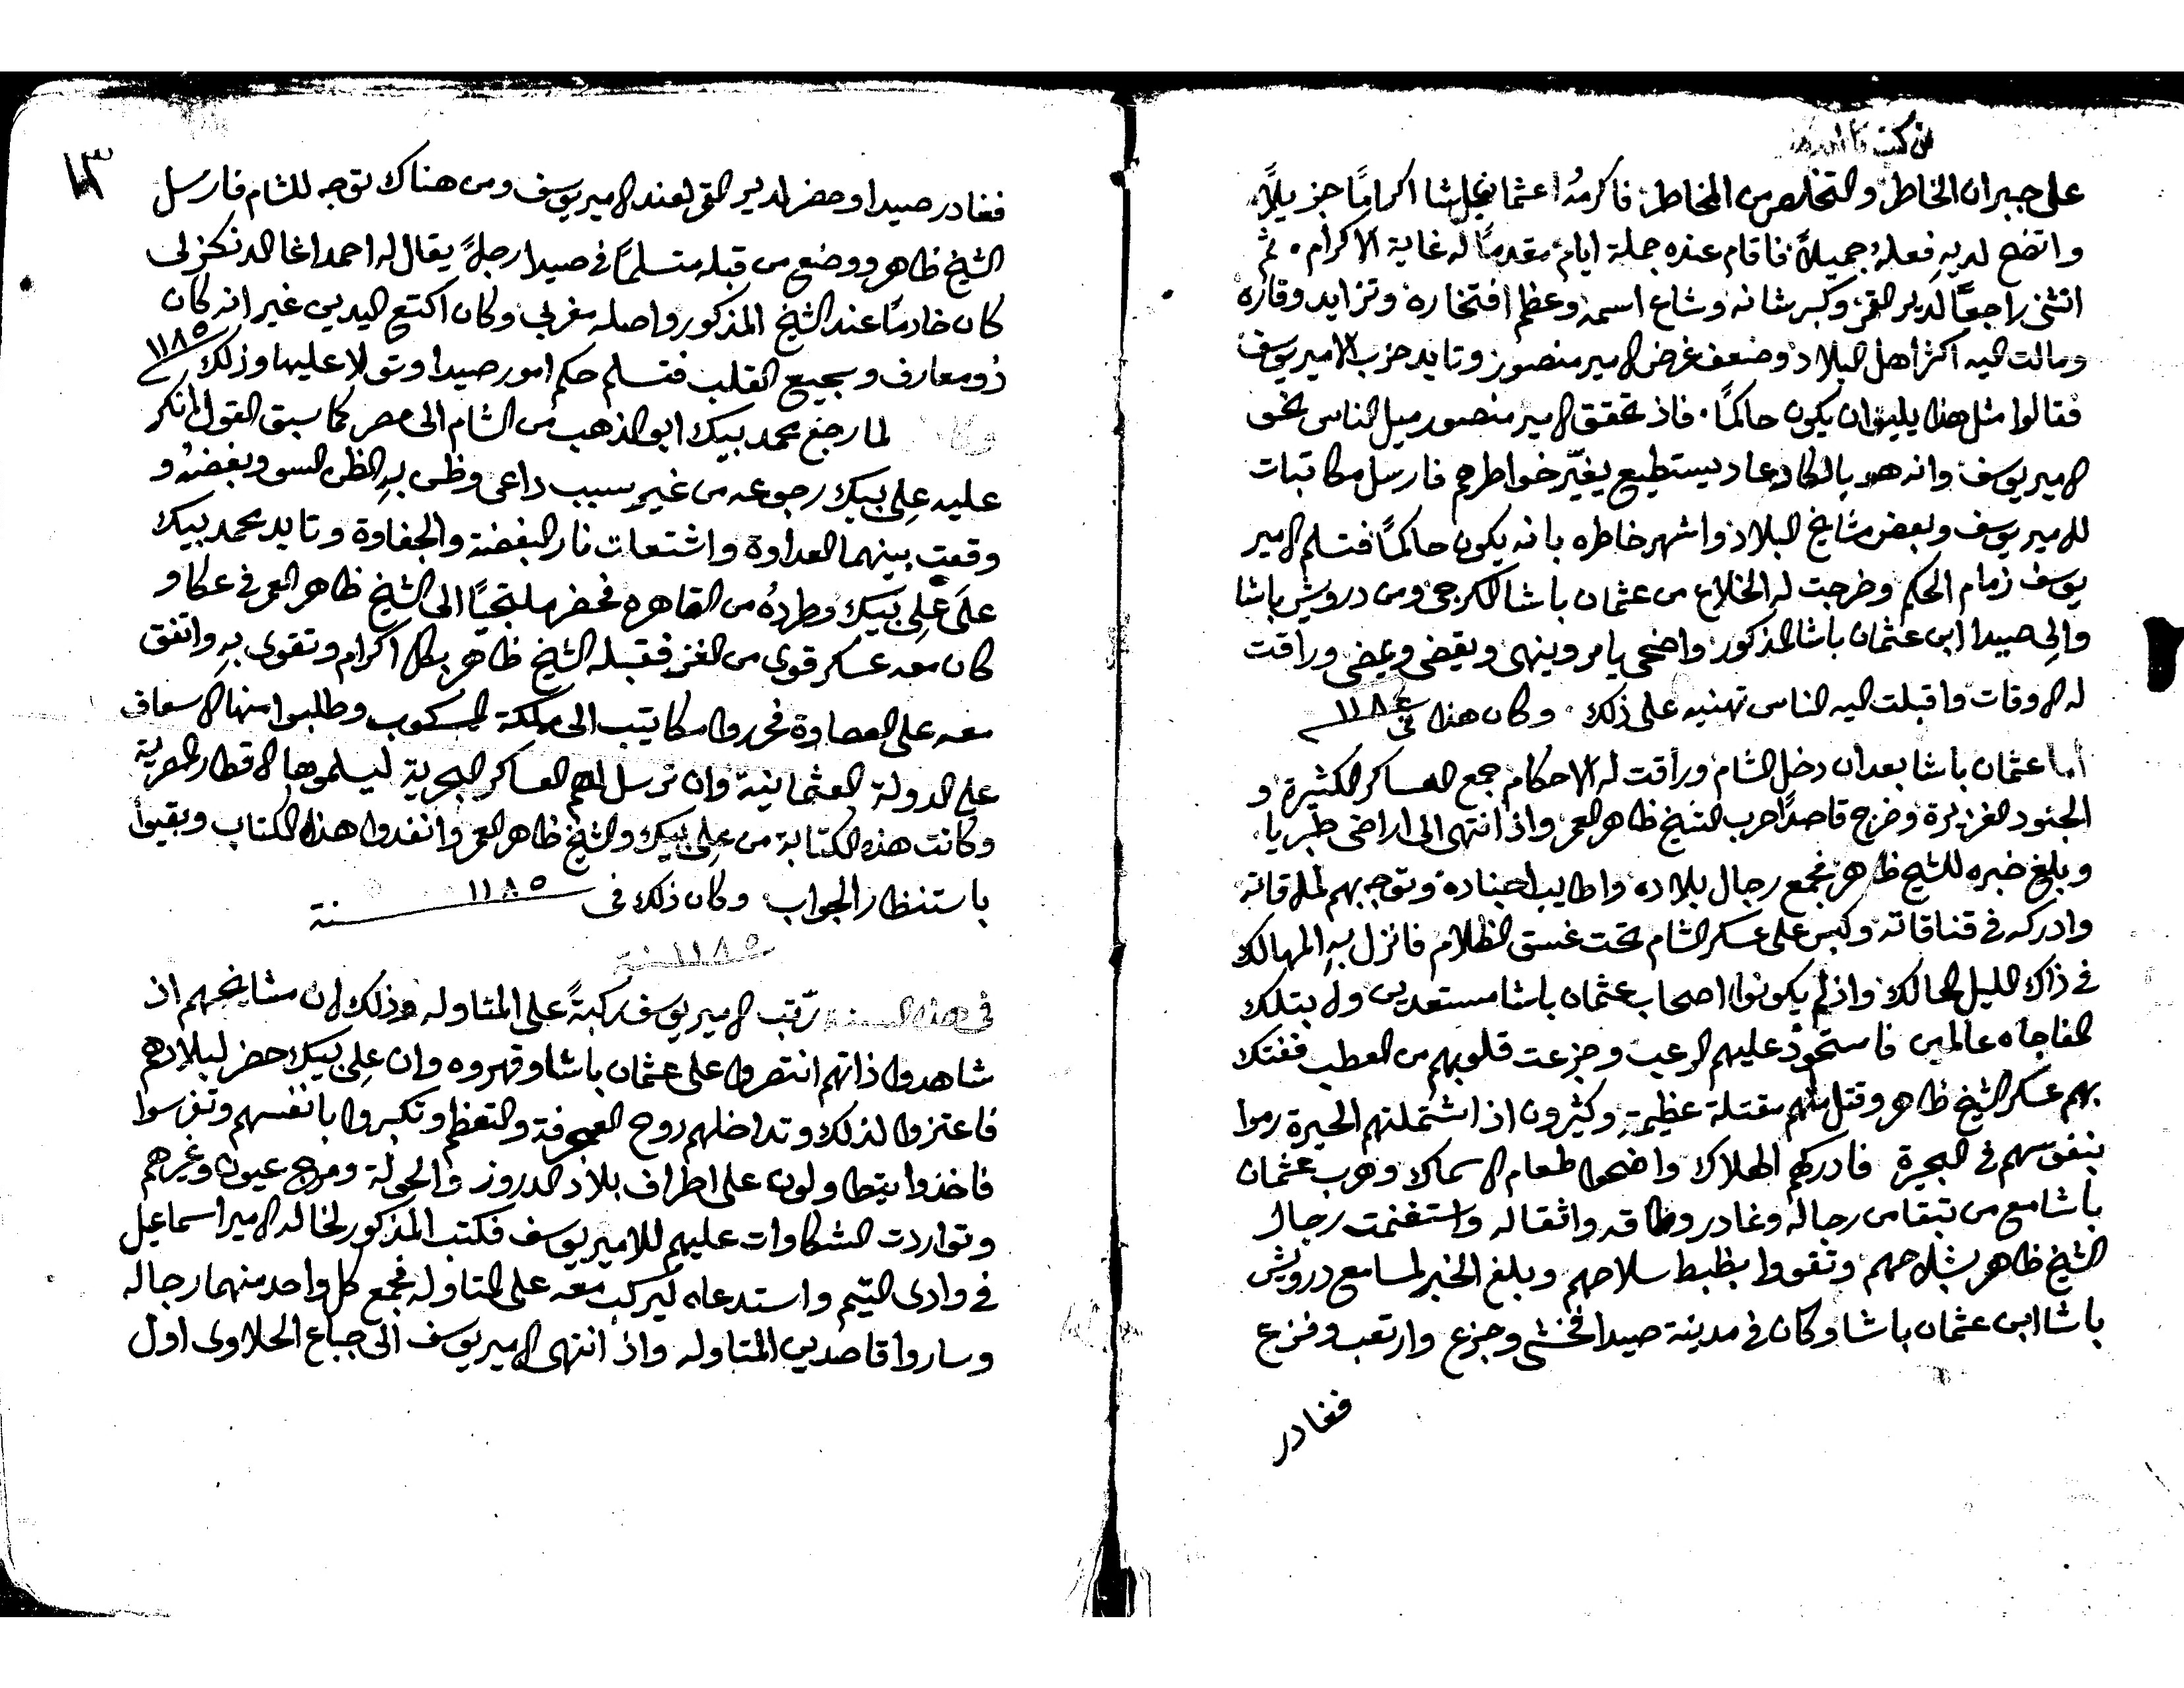 من كتب
على جبران الخاطر والتخلص من المخاطر فاكرمهُ عثمان باشا اكرامًا جزيلاً
واتضح لديهِ فعلهُ جميلاً فاقام عنده جملة ايام مقدمًا له غاية الاكرام. ثم
انثنى راجعًا لدير القمر وكبر شانه وشاع اسمه وعظم افتخاره وتزايد وقاره
ومالت اليه اكثر اهل البلاد وضعف غرض الامير منصور وتايد حزب الامير يوسف
فقالوا مثل هذا يليق ان يكون حاكمًا. فاذ تحقق الامير منصور ميل الناس نحو
الامير يوسف وانه هو بالكاد عاد يستطيع يغيّر خواطرهم فارسل مكاتبات
للامير يوسف وبعض مشايخ البلاد واشهر خاطره بانه يكون حاكمًا فتسلم الامير
يوسف زمام الحكم وخرجت له الخلاع من عثمان باشا الكرجي ومن درويش باشا
والِى صيدا ابن عثمان باشا المذكور واضحى يامر وينهى ويقضى ويمضى وراقت
له الاوقات واقبلت اليه الناس تهنيه على ذلك وكان هذا فى ١١٨٤
اما عثمان باشا بعد ان دخل الشام وراقت له الاحكام جمع العساكر الكثيرة و
الجنود الغزيرة وخرج قاصدًا حرب الشيخ ظاهر العمر واذ انتهى الى اراضى طبريا
وبلغ خبره للشيخ ظاهر فجمع رجال بلاده واطايب اجناده وتوجه بهم لملاقاته
وادركه فى قناقاته وكبس على عسكر الشام تحت غسق الظلام فانزل بهِ المهالك
فى ذاك الليل الحالك واذ لم يكونوا اصحاب عثمان باشا مستعدين ولا بتلك
المفاجاه عالمين فاستحوذ عليهم الرعب وجزعت قلوبهم من العطب ففتك
بهم عسكر الشيخ ظاهر وقتل منهم مقتلة عظيمة وكثيرون اذ اشتملتهم الحيرة رموا
بنفوسهم فى البحيرة فادركهم الهلاك واضحوا طعام الاسماك وهرب عثمان
باشا مع من تبقا من رجاله وغادر وطاقه واثقاله واستغنمت رجال
الشيخ ظاهر بشلاحهم وتقووا بظبط سلاحهم وبلغ الخبر لمسامع درويش
باشا ابن عثمان باشا وكان فى مدينة صيدا فخشى وجزع وارتعب وفزع
فغادر
١٣
فغادر صيدا وحضر لدير القمر لعند الامير يوسف ومن هناك توجه للشام فارسل
الشيخ ظاهر ووضع من قبله متسلمًا فى صيدا رجلاً يقال له احمد اغا الدنكزلى
كان خادمًا عند الشيخ المذكور واصله مغربى وكان اكتع اليدين غير انه كان
ذو معارف وسجيع القلب فتسلم حكم امور صيدا وتولا عليها وذلك ١١٨٥
لما رجع محمد بيك ابو الذهب من الشام الى مصر كما سبق القول انكر
عليه عِلى بيك رجوعه من غير سبب داعى وظن بهِ الظن السو وبغضهُ و
وقعت بينهما العداوة واشتعلت نار البغضة والجفاوة وتايد محمد بيك
علَى عِلى بيك وطردهُ من القاهره فحضر ملتجيًا الى الشيخ ظاهر العمر فى عكا و
كان معه عسكر قوى من الغز فقبله الشيخ ظاهر بكل اكرام وتقوى بهِ واتفق
معه على العصاوة فحرروا مكاتيب الى ملكة المسكوب وطلبوا منها الاسعاف
على الدولة العثمانية وان ترسل لهم العساكر البحرية ليسلموها الاقطار المصرية
وكانت هذه الكتابة من عِلى بيك والشيخ ظاهر العمر وانفدوا هذا الكتاب وبقيوا
باستنظار الجواب وكان ذلك فى ١١٨٥ سنة
١١٨٥ سنة
فى هذه السنه رتّب الامير يوسف ركبةً على المتاوله وذلك لان مشايخهم اذ
شاهدوا ذاتهم انتصروا على عثمان باشا وقهروه وان عِلى بيك حضر لبلادهم
فاعتزوا لذلك وتداخلهم روح العجرفة والتعظم وتكبروا بانفسهم وتفرسوا
فاخذوا يتطاولون على اطراف بلاد الدروز والحولة ومرج عيون وغيرهم
وتواردت الشكاوات عليهم للامير يوسف فكتب المذكور لخاله الامير اسماعيل
فى وادى التيم واستدعاه ليركب معه على المتاوله فجمع كل واحد منهما رجاله
وساروا قاصدين المتاوله واذ انتهى الامير يوسف الى جباع الحلاوى اول